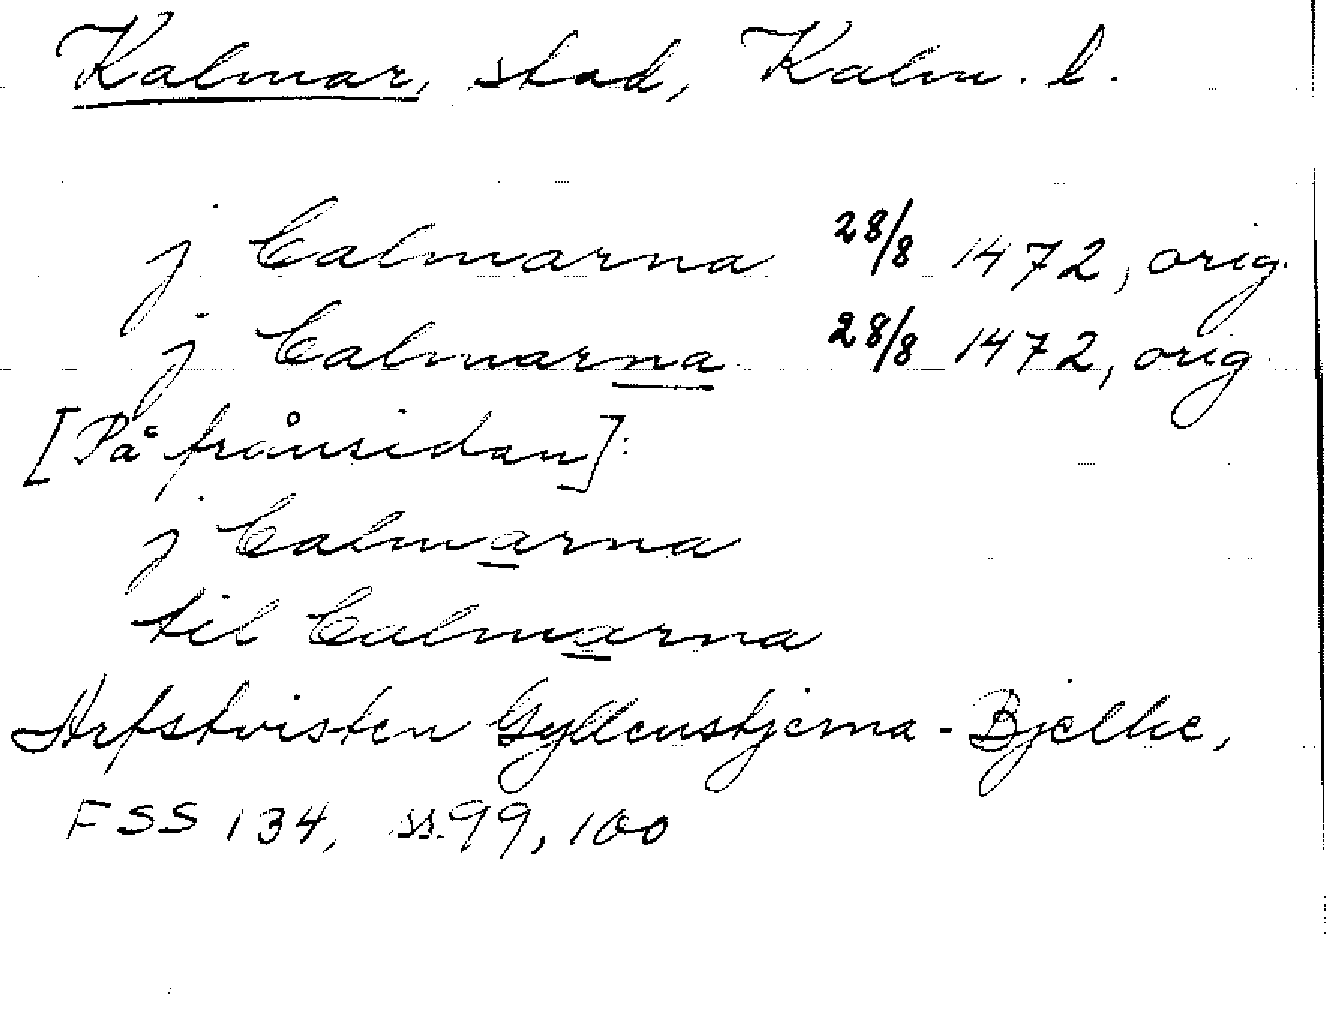 Kalmar, stad, Kalm. l.
j Calmarna 28/8 1472, orig.
j Calmarna 28/8 1472, orig.
[På frånsidan]:
j Calmarna
til Calmarna
Arfstvisten Gyllenstjerna-Bjelke,
FSS 134, ss. 99, 100